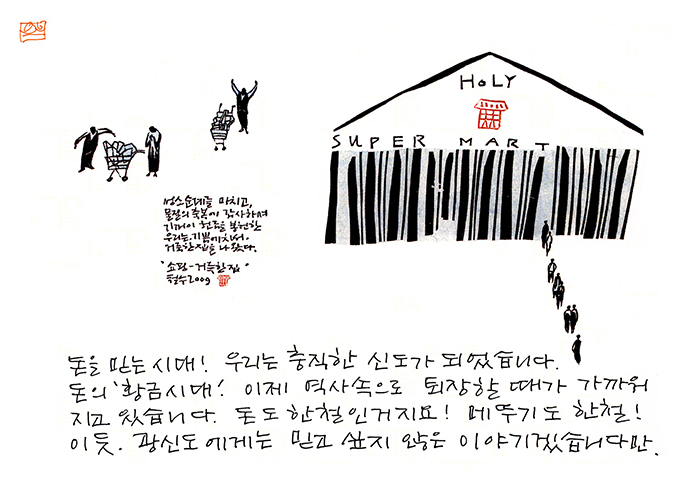 HOLY
SUPER MART
성소순례를 마치고,
물질의 축복에 감사하며
기꺼이 헌금을 봉헌한
우리는, 기쁨에 차서,
거룩한 집을 나왔다.
"쇼핑-거룩한 집"
철수 2009
돈을 믿는 시대! 우리는 충직한 신도가 되었습니다.
돈의 '황금시대'! 이제 역사속으로 퇴장할 때가 가까워
지고 있습니다. 돈도 한철인거지요! 메뚜기도 한철!
이듯. 광신도에게는 믿고 싶지 않은 이야기겠습니다만.